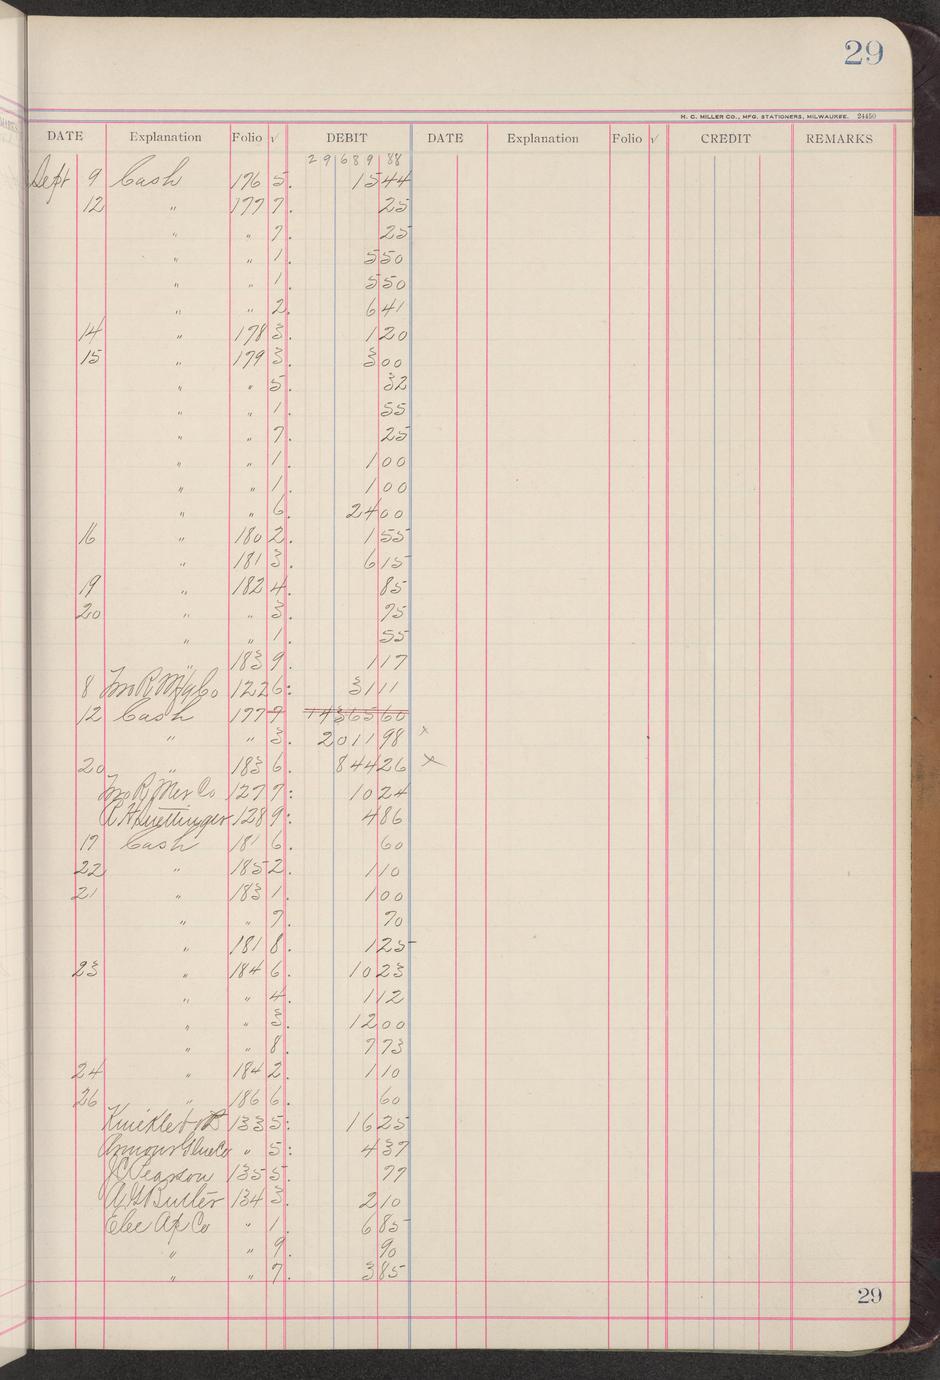 29
H. C. MILLER CO., MFG. STATIONERS, MILWAUKEE. 24450
DATE Explanation Folio √ DEBIT DATE Explanation Folio √ CREDIT REMARKS
29689 88
Sept 9 Cash 176 5. 15 44
12 " 177 7. 25
" " 7. 25
" " 1. 5 50
" " 1. 5 50
" " 2. 6 41
14 " 178 3. 1 20
15 " 179 3. 3 00
" " 5. 32
" " 1. 55
" " 7. 25
" " 1. 1 00
" " 1. 1 00
" " 6. 24 00
16 " 180 2. 1 55
" 181 3. 6 15
19 " 182 4. 85
20 " " 3. 75
" " 1. 55
" 183 9. 1 17
8 Jno R Mfg Co 122 6: 31 11
12 Cash 177 7 14365 60
" " 3. 2011 98 x
20 " 183 6. 844 26 x
Jno R Mer Co 127 7: 10 24
128 9: 4 86
17 Cash 181 6. 60
22 " 185 2. 1 10
21 " 183 1. 1 00
" " 7. 70
" 181 8. 1 25
23 " 184 6. 10 23
" " 4. 1 12
" " 3. 12 00
" " 8. 7 73
24 " 184 2. 1 10
26 " 186 6. 60
133 5: 16 25
Armour Glue Co " 5: 4 37
J C Pearson 135 5. 77
A G Butler 134 3. 2 10
Elec Ap Co " 1. 6 85
" " 9. 90
" " 7. 3 85
29